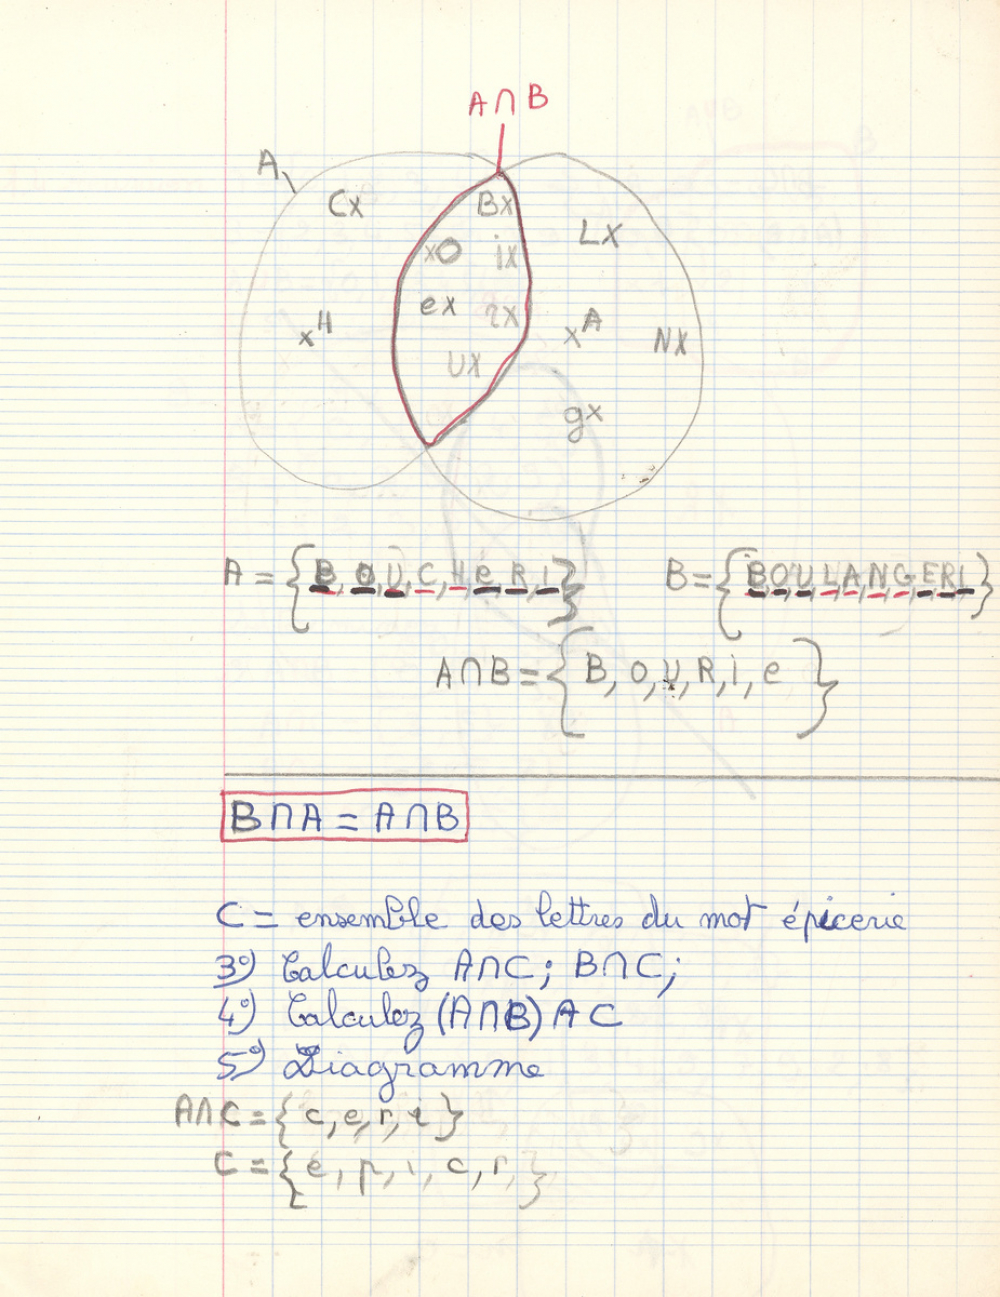 A∩B
A
Cx
Bx
xO
ix
Lx
ex
rx
xH
xA
Nx
Ux
gx
A = {B, O, U, C, H, e, R, I}
B = {B, O, U, L, A, N, G, E, R, I}
A∩B = {B, O, U, R, i, e}
B∩A = A∩B
C = ensemble des lettres du mot épicerie
3°) Calculez A∩C; B∩C;
4°) Calculez (A∩B) A C
5°) Diagramme
A∩C = {c, e, r, i}
C = {é, p, i, c, r, }